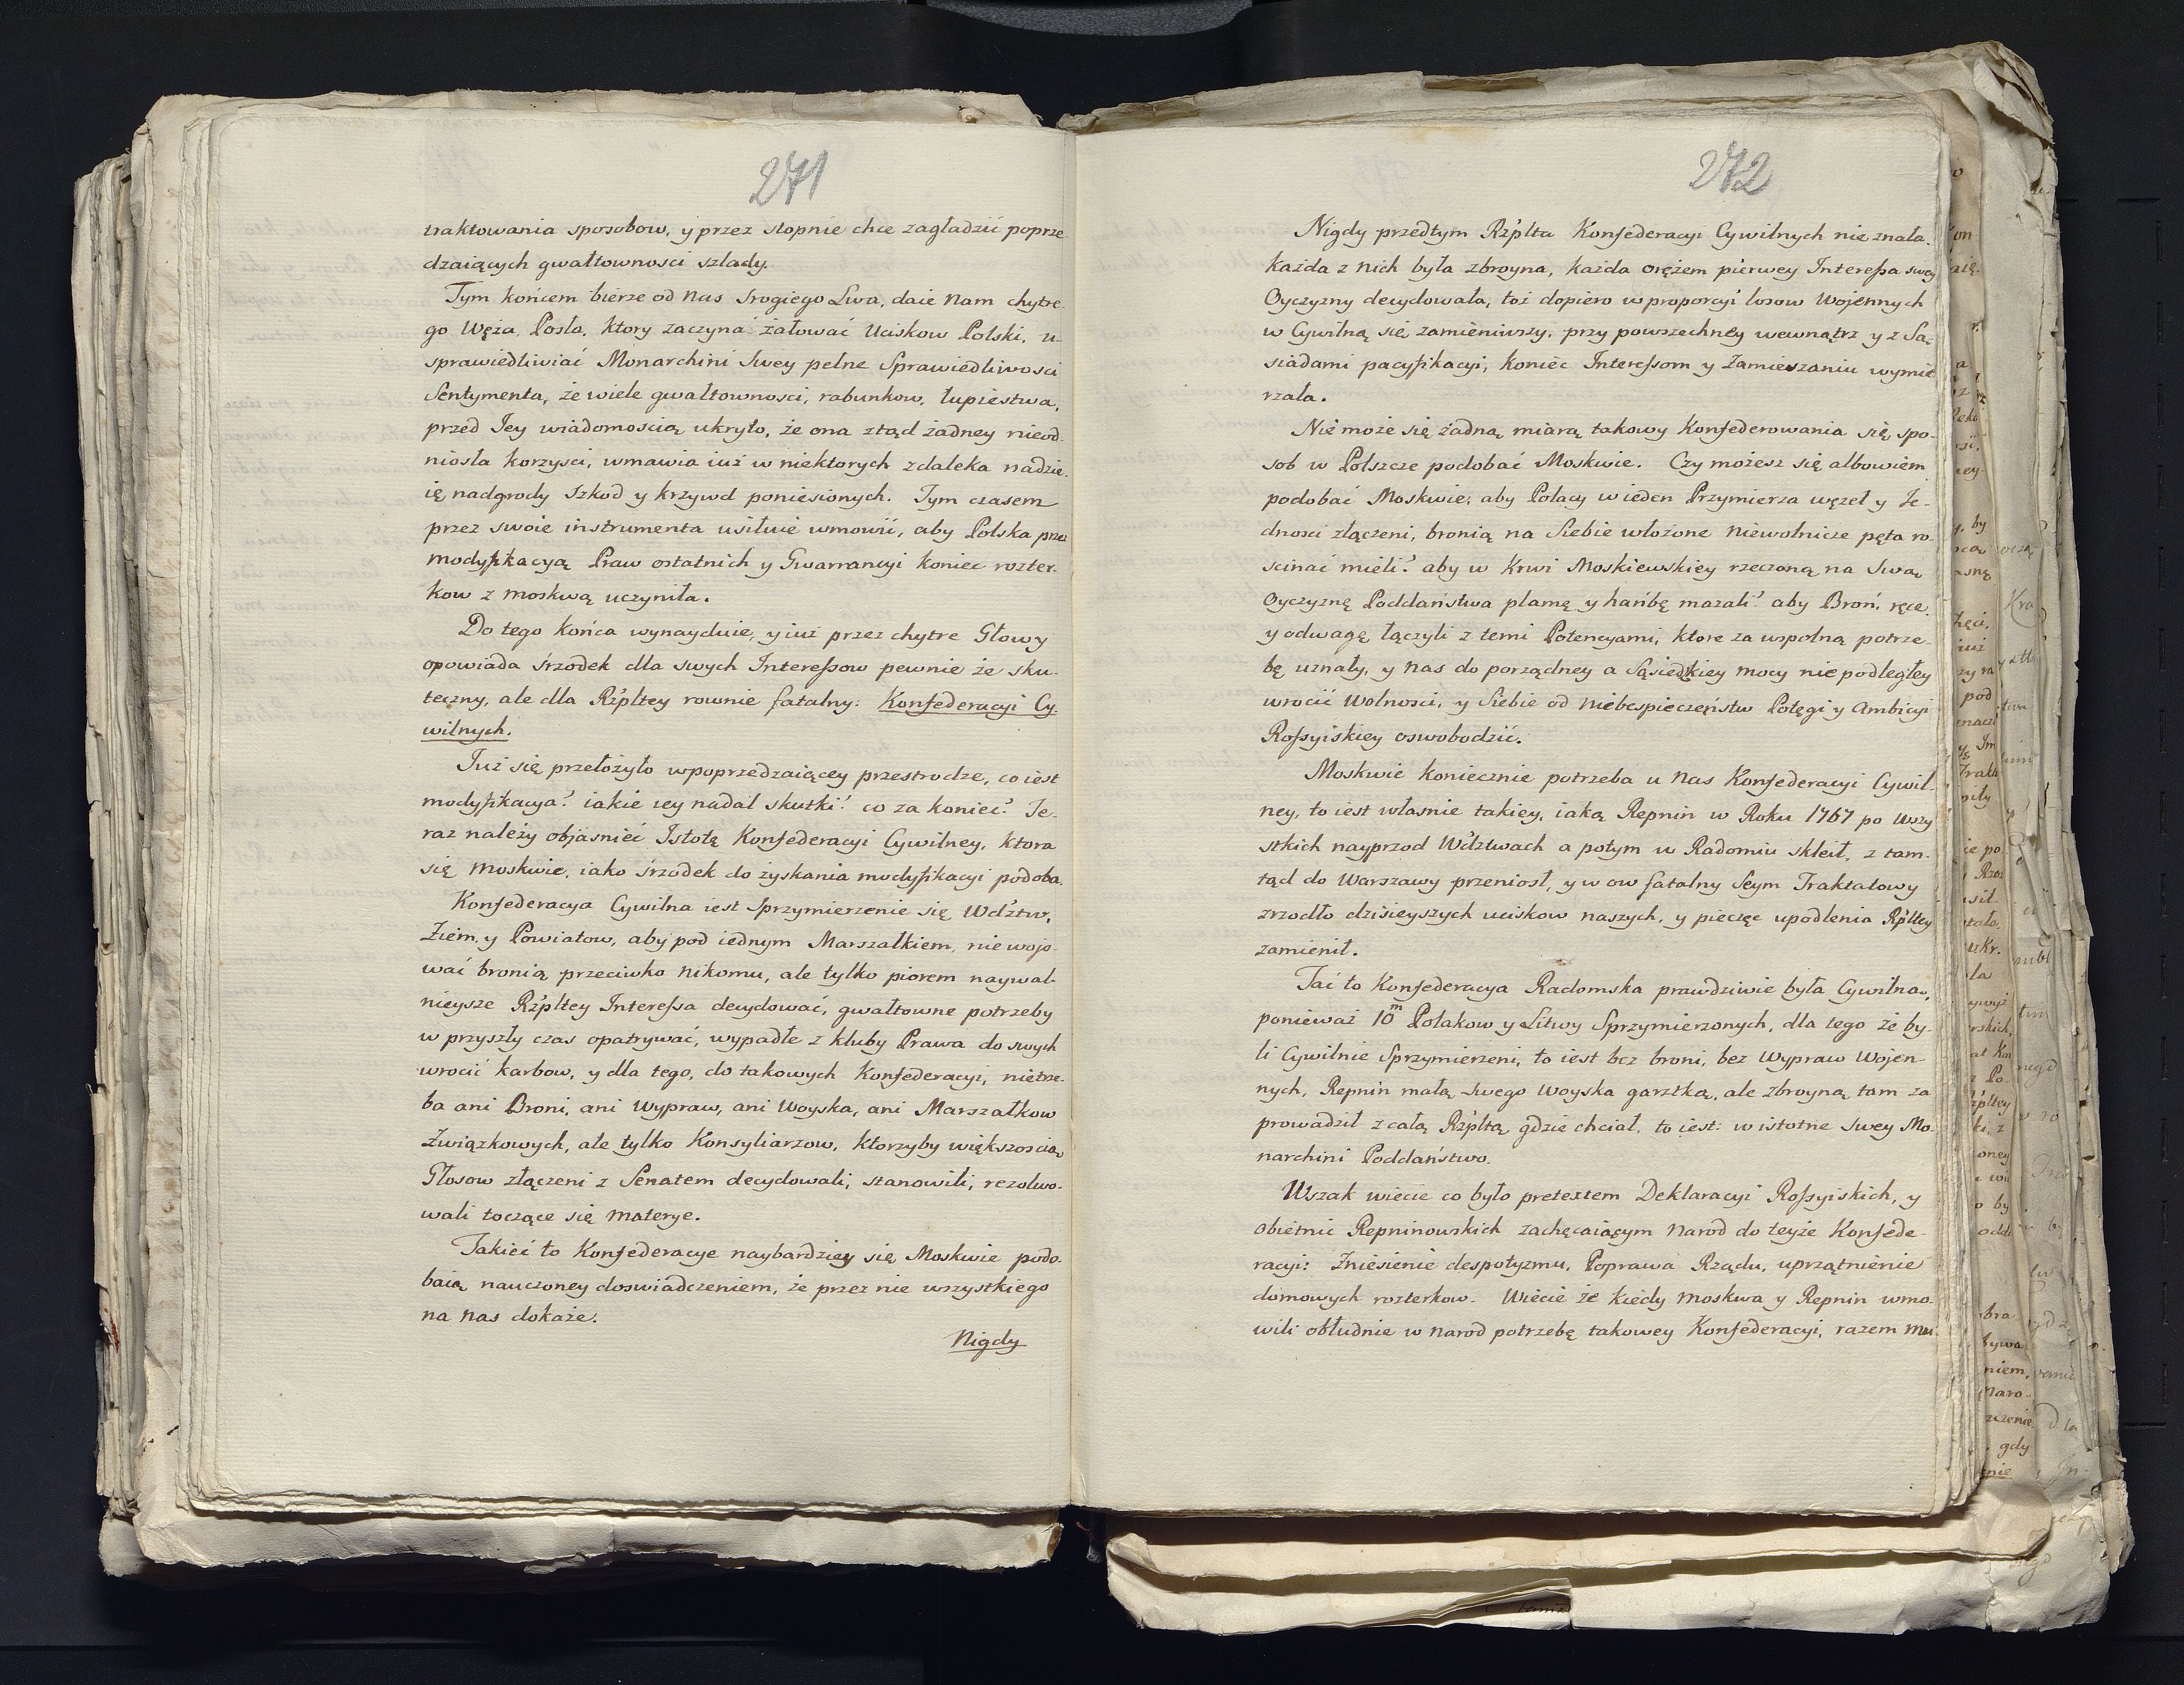 271
traktowania sposobow, y przez stopnie chce zagładzić poprze
dzaiących gwałtownosci szlady.
Tym końcem bierze od nas srogiego Lwa, daie nam chytre-
go Węża Posła, ktory zaczyna żałować Uciskow Polski, u-
sprawiedliwiać Monarchini Swey pełne Sprawiedliwosci
Sentymenta, że wiele gwałtownosci, rabunkow, łupiestwa,
przed Jey wiadomoscią ukryło, że ona ztąd żadney nieod-
niosła korzysci, wmawia iuż w niektorych zdaleka nadzie-
ię nadgrody szkod y krzywd poniesionych. Tym czasem
przez swoie instrumenta usiłuie wmowić, aby Polska przez
modyfikacyą Praw ostatnich y Gwarrancyi koniec rozter-
kow z moskwą uczyniła.
Do tego końca wynayduie, y iuż przez chytre Głowy
opowiada śrzodek dla swych Interessow pewnie że sku-
teczny, ale dla Rzpltey rownie fatalny: Konfederacyi Cy-
wilnych.
Już się przełożyło w poprzedzaiącey przestrodze, co iest
modyfikacya? iakie iey nadal skutki? co za koniec? Te-
raz należy objasnieć Istotę Konfederacyi Cywilney, ktora
się moskwie, iako śrzodek do zyskania modyfikacyi podoba.
Konfederacya Cywilna iest Sprzymierzenie się Wdztw,
Ziem, y Powiatow, aby pod iednym Marszałkiem, nie wojo-
wać bronią przeciwko nikomu, ale tylko piorem naywal-
nieysze Rzpltey Interessa decydować, gwałtowne potrzeby
w przyszły czas opatrywać, wypadłe z kluby Prawa do swych
wrocić karbow, y dla tego, do takowych Konfederacyi, nietrze-
ba ani Broni, ani Wypraw, ani Woyska, ani Marszałkow
Związkowych, ale tylko Konsyliarzow, ktorzyby większoscią
Głosow złączeni z Senatem decydowali, stanowili, rezolwo-
wali toczące się materye.
Takieć to Konfederacye naybardziey się Moskwie podo-
baią nauczoney doswiadczeniem, że przez nie wszystkiego
na nas dokaże.
Nigdy
272
Nigdy przedtym Rzplta Konfederacyi Cywilnych nie znała.
każda z nich była zbroyna, każda orężem pierwey Interessa swey
Oyczyzny decydowała, toż dopiero w proporcyi losow Wojennych
w Cywilną się zamieniwszy, przy powszechney wewnątrz y z Są-
siadami pacyfikacyi, koniec Interessom y Zamieszaniu wymie
rzała.
Nie może się żadną miarą takowy Konfederowania się spo-
sob w Polszcze podobać Moskwie. Czy możesz się albowiem
podobać Moskwie, aby Polacy w ieden Przymierza węzeł y Je-
dnosci złączeni, bronią na Siebie włożone niewolnicze pęta ro-
scinać mieli? aby w Krwi Moskiewskiey rzeczoną na Swą
Oyczyznę Poddaństwa plamę y hańbę mazali? aby Broń, ręce,
y odwagę łączyli z temi Potencyami, ktore za wspolną potrze-
bę uznały, y nas do porządney a Sąsiedzkiey mocy nie podległey
wrocić Wolnosci, y Siebie od niebespieczeństw Potęgi y Ambicyi
Rossyiskiey oswobodzić.
Moskwie koniecznie potrzeba u nas Konfederacyi Cywil-
ney, to iest własnie takiey, iaką Repnin w Roku 1767 po Wszy
stkich nayprzod Wdztwach a potym w Radomiu skleił, z tam-
tąd do Warszawy przeniosł, y w ow fatalny Seym Traktatowy
zrzodło dzisieyszych uciskow naszych, y pieczęc upodlenia Rpltey
zamienił.
Tać to Konfederacya Radomska prawdziwie była Cywilna,
ponieważ 10m Polakow y Litwy Sprzymierzonych, dla tego że by-
li Cywilnie Sprzymierzeni, to iest bez broni, bez Wypraw Wojen-
nych, Repnin małą swego Woyska garztką, ale zbroyną tam za
prowadził z całą Rzpltą gdzie chciał, to iest: w istotne swey Mo-
narchini Poddaństwo.
Wszak wiecie co było pretextem Deklaracyi Rossyiskich, y
obietnic Repninowskich zachęcaiącym Narod do teyże Konfede-
racyi: Zniesienie despotyzmu, Poprawa Rządu, uprzątnienie
domowych rozterkow. Wiecie że kiedy Moskwa y Repnin wmo-
wili obłudnie w narod potrzebę takowey Konfederacyi, razem mu